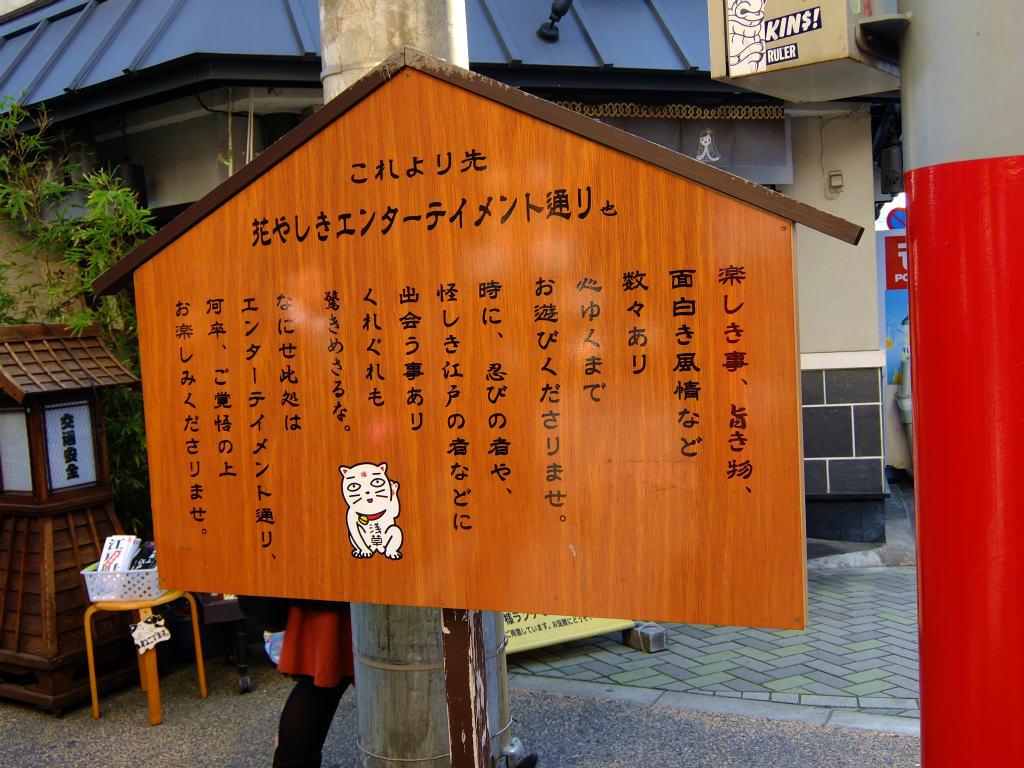 これより先
花やしきエンターテイメント通り也
楽しき事、旨き物、
面白き風情など
数々あり
心ゆくまで
お遊びくださりませ。
時に、忍びの者や、
怪しき江戸の者などに
出会う事あり
くれぐれも
驚きめさるな。
なにせ此処は
エンターテイメント通り、
何卒、ご覚悟の上
お楽しみくださりませ。
浅草
交通安全
KIN$!
RULER
ご用意しています。お気軽にどうぞ